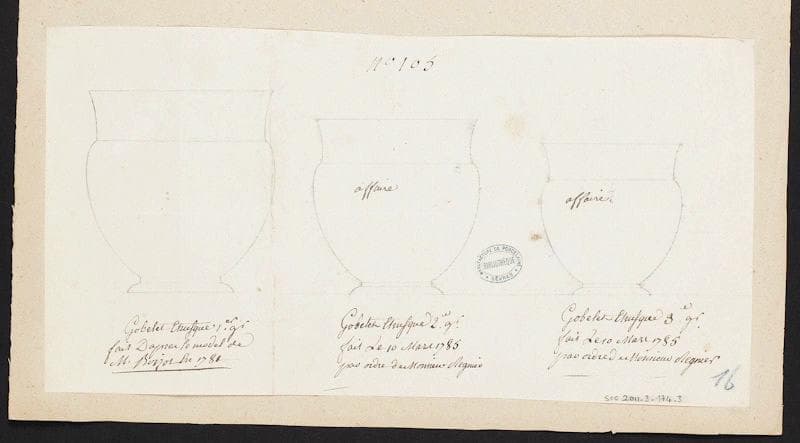 Nº 106
affaire
affaire
Gobelet Etrusque 1.re gr
fait Dapres le model de
M. Boizot
Gobelet Etrusque 2.e gr.
fait Le 10 Mars 1785
par ordre de Monsieur Regnier
Gobelet Etrusque 3.e gr
fait Le 10 Mars 1785
par ordre de Monsieur Regnier
MANUFACTURE DE PORCELAINE
BIBLIOTHÈQUE
SÈVRES
16
2011-3-174-3